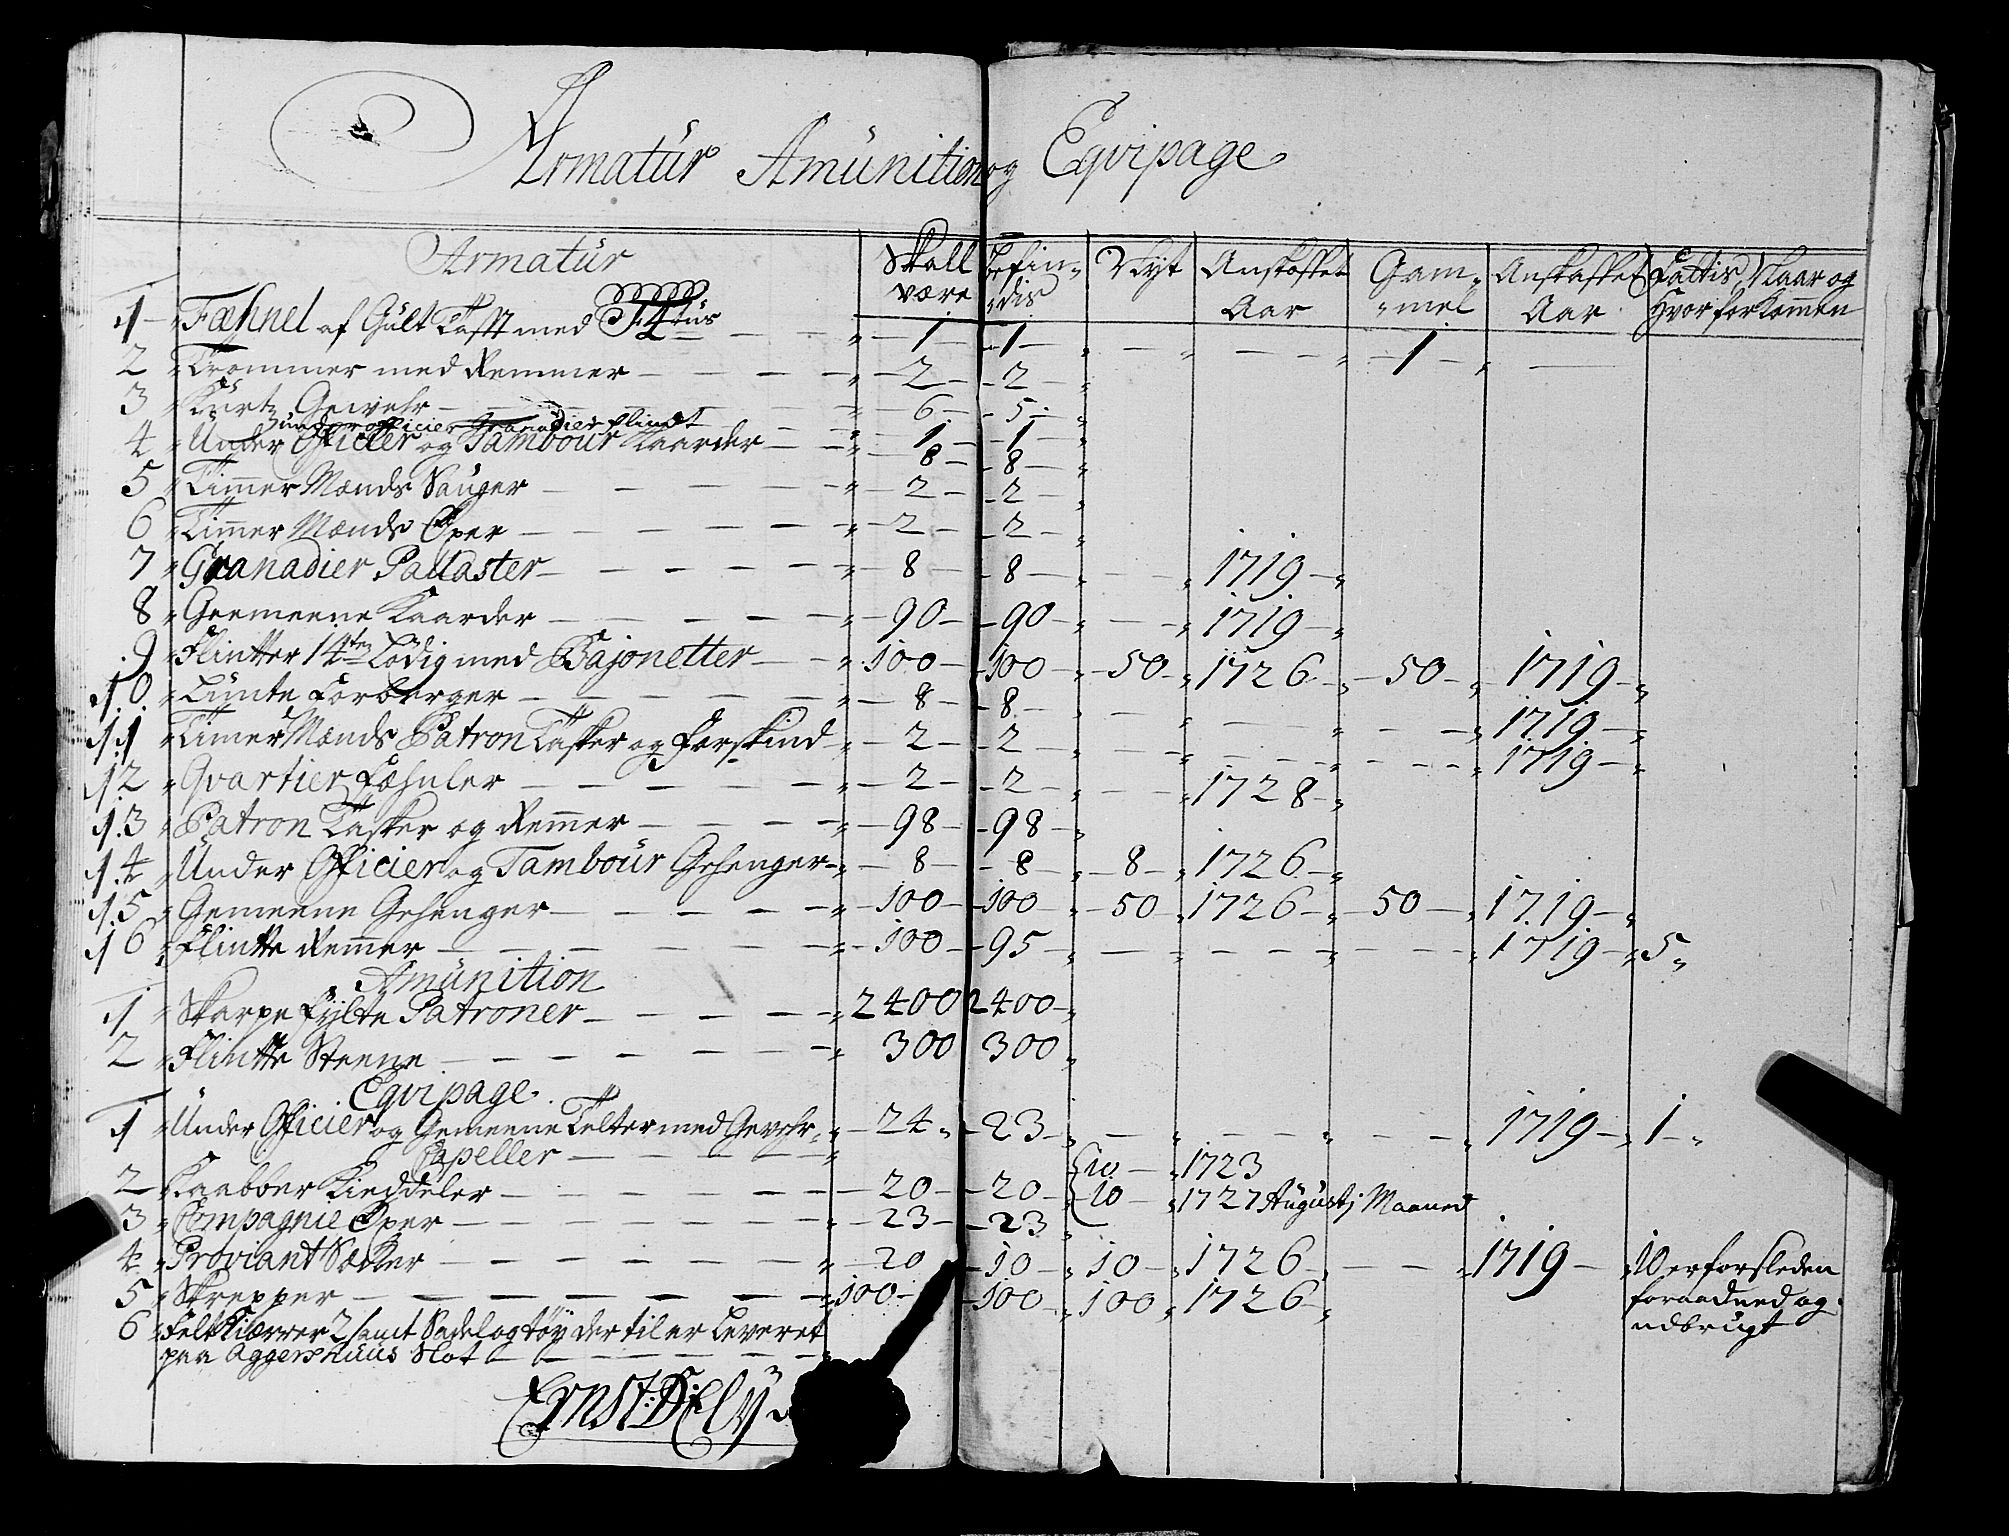 Armatür Amünition og Eqvipage
Armatür Skall være Befindis Nyt Anskaffet Aar Gammel Anskaffet Aar Fattis, Naar og Hvorforkommen
1 Fæhnel af Gült Tafft med F4tus 1 1 1
2 Trommer med Remmer 2 2
3 Kürtz Gewehr 6 5
ünderofficier Granadier flindt 1 1
4 Ünder Officier og Tambour Kaarder 8 8
5 Timmer Mænds Sauger 2 2
6 Timmer Mænds Øxer 2 2
7 Granadier Pallaster 8 8 1719
8 Geemeene Kaarder 90 90 1719
9 Flintter 14ten Lödig med Bajonetter 100 100 50 1726 50 1719
10 Lünte Forberger 8 8 1719
11 Timer Mænds Patron Tasker og Forskind 2 2 1719
12 Qvartier Fæhnler 2 2 1728
13 Patron Tasker og Remer 98 98
14 Ünder Officier og Tambour Gehenger 8 8 8 1726
15 Gemeene Gehenger 100 100 50 1726 50 1719
16 Flintte Remer 100 95 1719 5
Amünition
1 Skarpe fylte Patroner 2400 2400
2 Flintte Steene 300 300
Eqvipage
1 Ünder Officier og Gemeene Telter med Gevehr 24 23 1719 1
Capeller
2 Kaabber Kieddeler 20 20 10 1723
10 1727 Augustj Maaned
3 Compagnie Øxer 23 23
4 Proviant Sækker 20 10 10 1726 1719 10 er forsleden
5 Skrepper 100 100 100 1726 foraadned og
udbrugt
6 Felt Kiærrer 2 samt Sadel og töy dertil er Leveret
paa Aggershuus Slot
Ernst D: